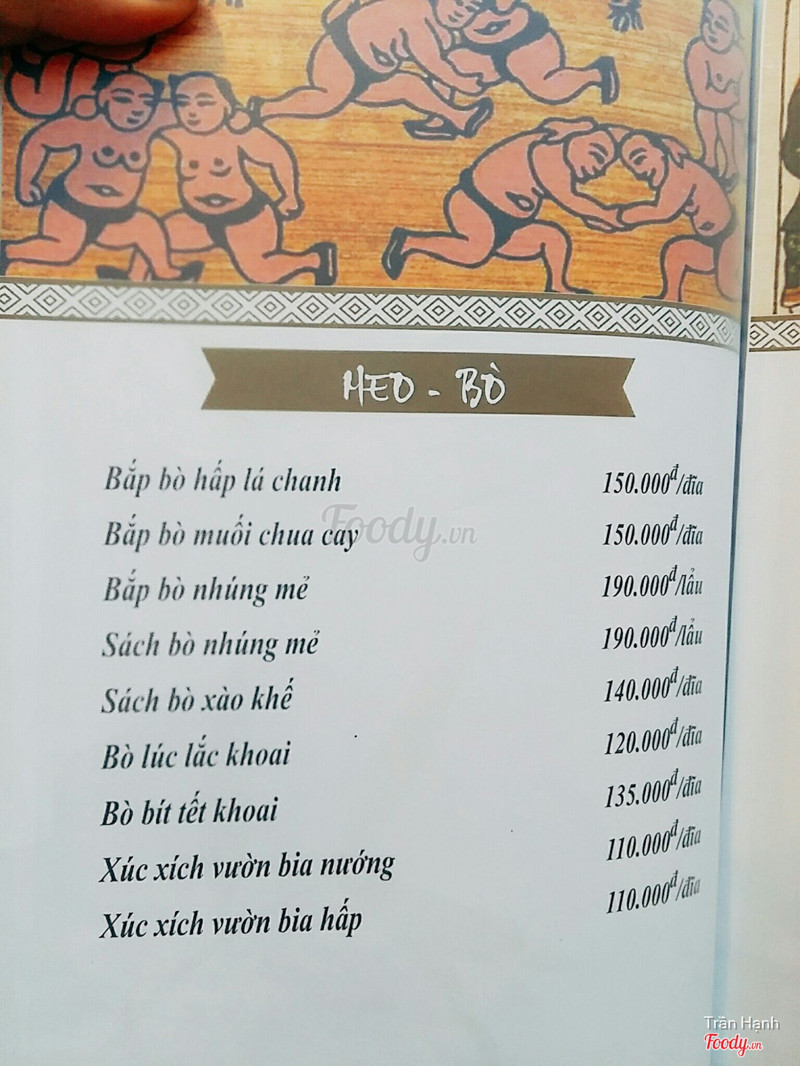 HEO - BÒ
Bắp bò hấp lá chanh 150.000đ/đĩa
Bắp bò muối chua cay 150.000đ/đĩa
Bắp bò nhúng mẻ 190.000đ/lẩu
Sách bò nhúng mẻ 190.000đ/lẩu
Sách bò xào khế 140.000đ/đĩa
Bò lúc lắc khoai 120.000đ/đĩa
Bò bít tết khoai 135.000đ/đĩa
Xúc xích vườn bia nướng 110.000đ/đĩa
Xúc xích vườn bia hấp 110.000đ/đĩa
Foody.vn
Trần Hạnh
Foody.vn